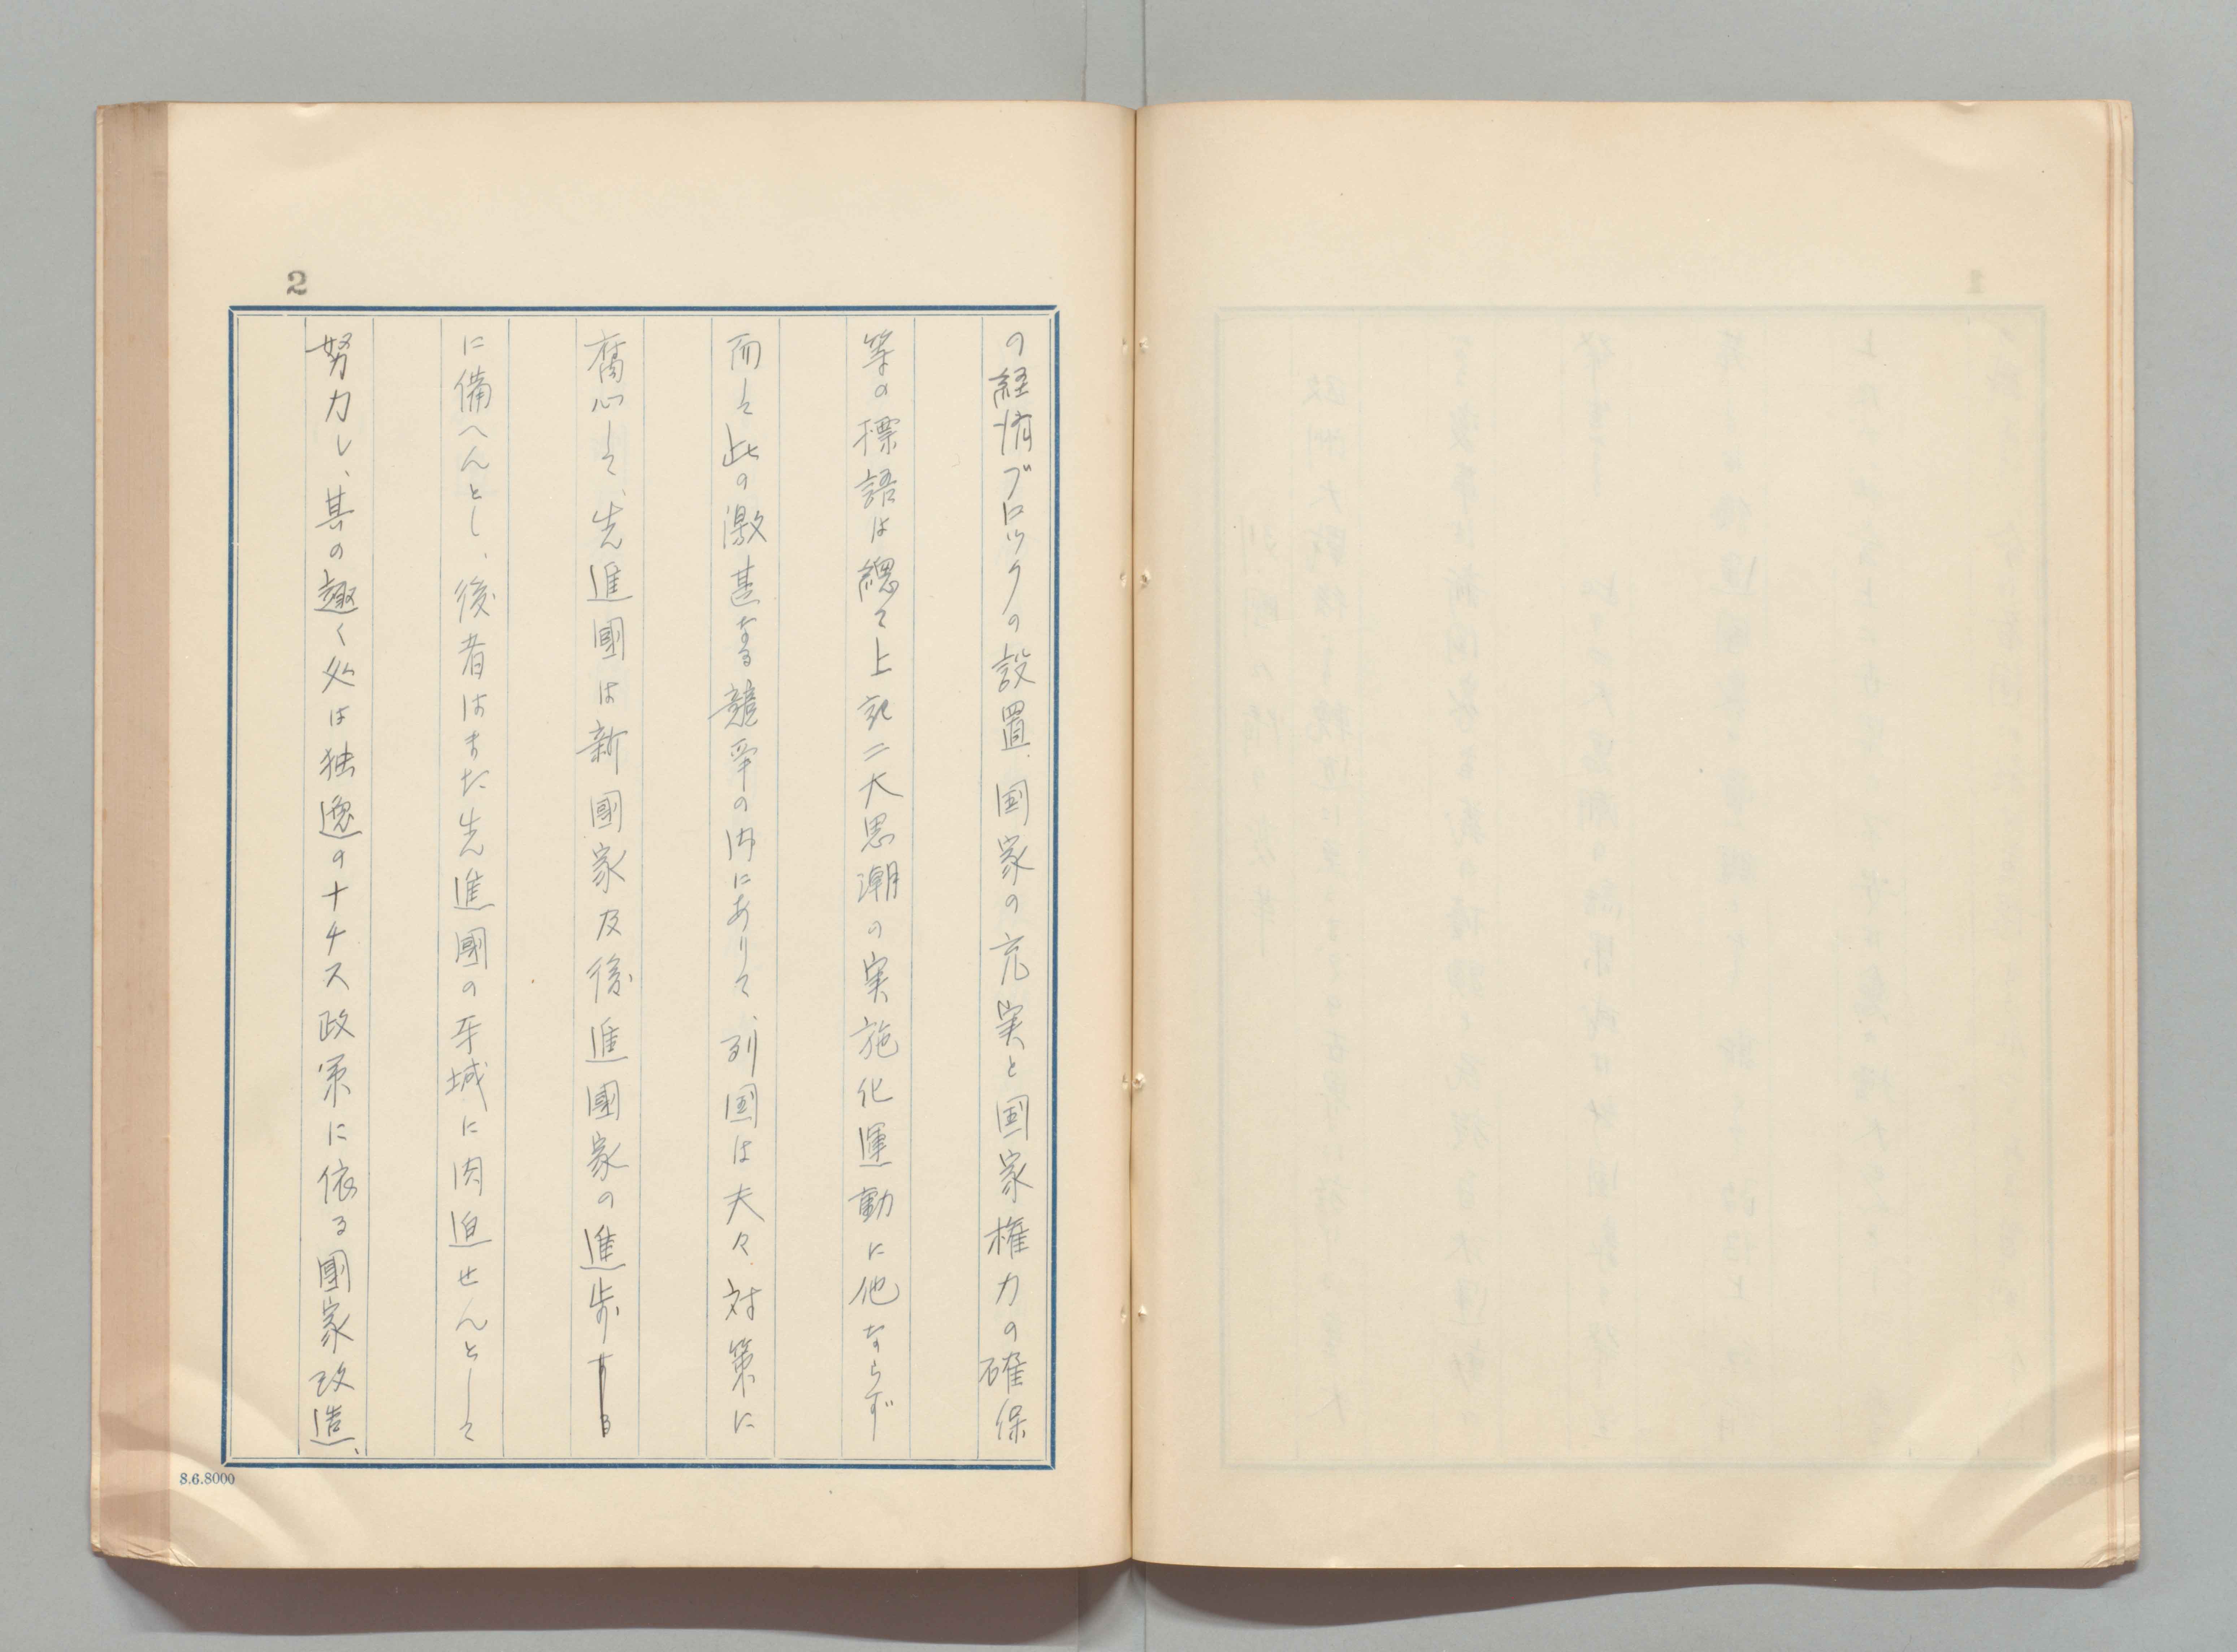 2
の経済ブロックの設置、国家の充実と国家権力の確保
等の標語は總て上記二大思潮の実施化運動に他ならず
而して此の激甚なる競爭の内にありて、列国は夫々対策に
腐心して、先進國は新國家及後進國家の進歩する
に備へんとし、後者はまた先進國の牙城に肉迫せんとして
努力し、其の趣く处は独逸のナチス政策に依る國家改造、
8.6.8000